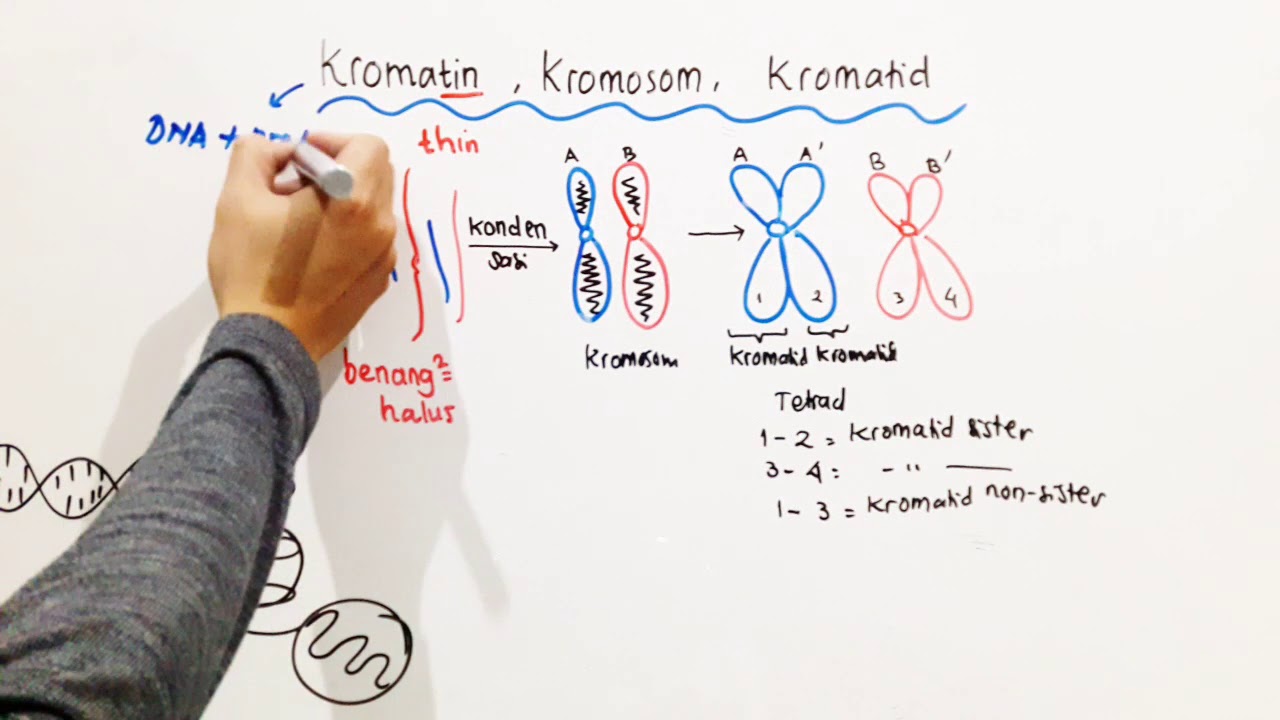 Kromatin , Kromosom, Kromatid
DNA +
thin
A B A A' B B'
Konden
sasi
1 2 3 4
benang²=
halus
Kromosom
Kromatid Kromatid
Tetrad
1 - 2 = Kromatid sister
3 - 4 = - " —
1 - 3 = Kromatid non-sister